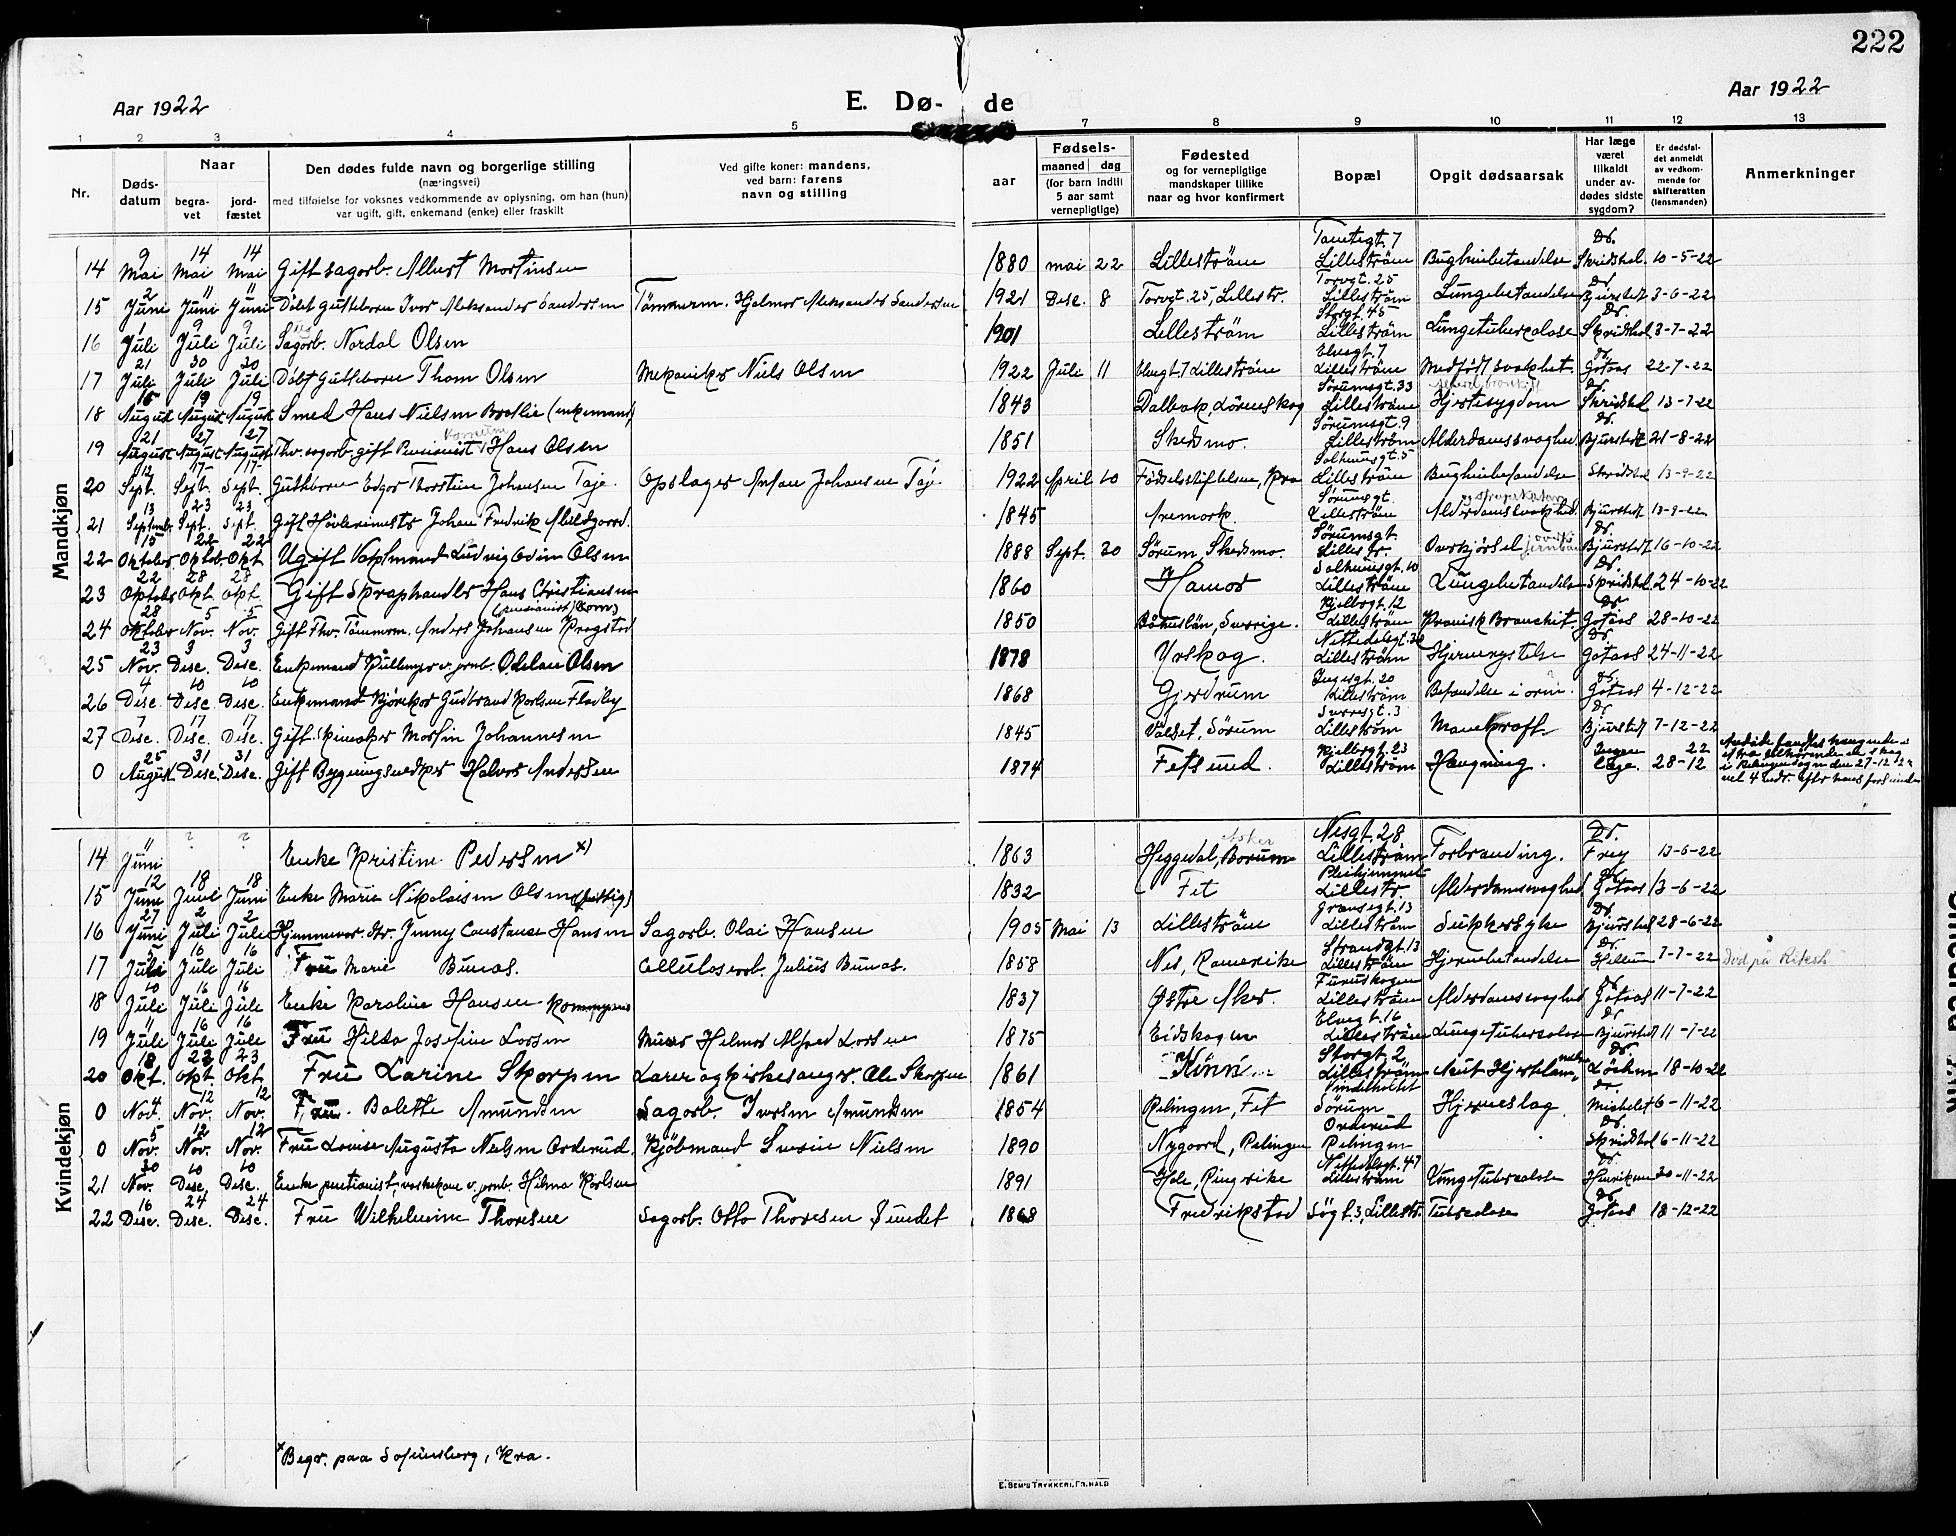 222
Aar 1922
E. Dø- de
Aar 1922
1 2 3 4 5 7 8 9 10 11 12 13
Nr.
Døds-
datum
Naar
begra-
vet
jord-
fæstet
Den dødes fulde navn og borgerlige stilling
(næringsvei)
med tilføielse for voksnes vedkommende av oplysning, om han (hun)
var ugift, gift, enkemand (enke) eller fraskilt
Ved gifte koner: mandens,
ved barn: farens
navn og stilling
Fødsels-
aar
maaned dag
(for barn indtil
5 aar samt
vernepligtige)
Fødested
og for vernepligtige
mandskaper tillike
naar og hvor konfirmert
Bopæl
Opgit dødsaarsak
Har læge
været
tilkaldt
under av-
dødes sidste
sygdom?
Er dødsfal-
det anmeldt
av vedkom-
mende for
skifteretten
(lensmanden)
Anmerkninger
Mandkjøn
14 9 Mai 14 Mai 14 Mai Gift sagarb. Albert Martinsen 1880 Mai 22 Lillestrøm Lillestrøm Bughindebetændelse Dr. 10-5-22
15 2 Juni 11 Juni 11 Juni Døbt Guttebarn Ivar Aleksander Sandersen Tømmerm. Hjalmar Aleksander Sandersen 1921 Dese. 8 Torvgt. 25, Lillestr. Torvgt. 25 Lillestrøm Lungebetændelse Dr. Bjurstedt 3-6-22
16 1 Juli 9 Juli 9 Juli Sagarb. Nordal Olsen 1901 Lillestrøm Storgt. 45 Lillestrøm Lungetuberkulose Dr. 3-7-22
17 21 Juli 30 Juli 30 Juli Døbt Guttebarn Thom Olsen Mekaniker Niels Olsen 1922 Juli 11 Elvegt. 7 Lillestrøm Elvegt. 7 Lillestrøm Medfødt svakhet Dr. Gotaas 22-7-22
18 August 19 August 19 August Smed Hans Nielsen Braatlie (enkemand) 1843 Dalbak, Lørenskog Sørumsgt. 33 Lillestrøm Hjertesygdom Dr. 13-7-22
19 21 August 27 August 27 August Thv. sagarb. gift Pensionist Hans Olsen 1851 Skedsmo. Sørumsgt. 9 Lillestrøm Alderdomssvaghed Dr. Bjurstedt 21-8-22
20 12 Sept. 17 Sept. 17 Sept. Guttebarn Edgar Thorstein Johansen Taje. Opslager Anton Johansen Taje. 1922 April 10 Fødselsstiftelsen, Kra Solheimsgt. 5 Lillestrøm Bughindebetændelse 13-9-22
21 13 Septembr. 23 Sept. 23 Sept. Gift Høvlerimester Johan Fredrik Mildgaard. 1845 Aremark. Sørumsgt. Lillestrøm Alderdomssvakhed Bjurstedt 13-9-22
22 15 Oktober 22 Oktob. 22 Okt. Ugift Vaktmand Ludvig Odin Olsen 1888 Sept. 30 Sørum, Skedsmo. Sørumsgt. Lillestr. Overkjørsel Dr. Bjurstedt 16-10-22
23 22 Oktober 28 Okt. 28 Okt. Gift Skraphandler Hans Christiansen 1860 Hamar Solheimsgt. 10 Lillestrøm Lungebetændelse Dr. 24-10-22
24 28 Oktober 5 Nov. 5 Nov. Gift Thv. Tømmerm. Anders Johansen Krogstad 1850 Båhuslän, Sverige. Kjelbergt. 12 Lillestrøm Kronisk Bronchit. Dr. Gotaas 28-10-22
25 23 Nov. 3 Dese. 3 Dese. Enkemand Pullenger v. jernb. Odelan Olsen 1878 Urskog. Nittedalsgt. Lillestrøm Hjernerystelse Dr. Gotaas 24-11-22
26 4 Dese. 10 Dese. 10 Dese. Enkemand Kjørekar Gudbrand Karlsen Fladby 1868 Gjerdrum Lillestrøm Betændelse i Dr. Gotaas 4-12-22
27 7 Dese. 17 Dese. 17 Dese. Gift Skomaker Martin Johannesen 1845 Valset, Sørum. Sverresgt. 3 Lillestrøm Mavekræft Dr. Bjurstedt 7-12-22
0 25 August 31 Dese. 31 Dese. Gift Bygningssnedker Halvor Andersen 1874 Fetsund. Kjelbergt. 23 Lillestrøm Hængning. Ingen læge. 28-12 22
Kvindekjøn
14 11 Juni ? ? Enke Kristine Pedersen x) 1863 Heggedal, Asker Nesgt. 28 Lillestrøm Forbrænding. Dr. Frey 13-6-22
15 12 Juni 18 Juni 18 Juni Enke Marie Nikolaisen Olsen (fattig) 1832 Fet Pleiehjemmet Lillestr. Alderdomssvaghed Dr. Gotaas 13-6-22
16 27 Juni 2 Juli 2 Juli Hjemmevær. Dtr. Jenny Constance Hansen Sagarb. Olai Hansen 1905 Mai 13 Lillestrøm Grænsegt. 13 Lillestrøm Sukkersyke Dr. Bjurstedt 28-6-22
17 5 Juli 16 Juli 16 Juli Fru Marie Bunæs. Cellulosearb. Julius Bunæs. 1858 Nes, Romerike Strandgt. 13 Lillestrøm Hjernebetændelse Dr. 7-7-22 Død på Riksh
18 10 Juli 16 Juli 16 Juli Enke Karoline Hansen 1837 Østre Aker. Furuskogen Lillestrøm Alderdomssvaghed Dr. Gotaas 11-7-22
19 11 Juli 16 Juli 16 Juli Fru Hilda Josefine Larsen Murer Helmer Alfred Larsen 1875 Eidskogen Elvegt. 16 Lillestrøm Lungetuberculose Dr. Bjurstedt 11-7-22
20 18 Okt. 23 Okt. 23 Okt. Fru Larine Skorpen Lærer og Kirkesanger. Ole Skorpen 1861 Kinn Storgt. 2, Lillestrøm Akut Hjertelam Dr. Løchen 18-10-22
0 4 Nov. 12 Nov. 12 Nov. Fru. Balette Amundsen Sagarb. Iversen Amundsen 1854 Rælingen, Fet Vindeholtet Sørum Hjerneslag. Dr. Michelet 6-11-22
0 5 Nov. 12 Nov. 12 Nov. Fru Louise Augusta Nielsen Orderud. Kjøbmand Nielsen 1890 Nygaard, Relingen Orderud Relingen Dr. 6-11-22
21 30 Nov. 10 Dese. 10 Dese. Enke pensionist, vaskekone v. jernb. Hilma Karlsen 1891 Hole, Ringerike Nittedalsgt. 47 Lillestrøm Lungetuberculose Dr. Henriksen 30-11-22
22 16 Dese. 24 Dese. 24 Dese. Fru Wilhelmine Thoresen Sagarb. Otto Thoresen Sundet 1868 Fredrikstad Søgt. 3, Lillestr. Tuberculose Dr. Gotaas 18-12-22
x Begr. paa Sofienberg, Kra.
E. SEM'S TRYKKERI, FR.HALD